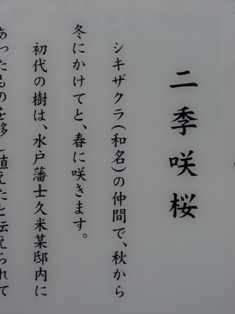 二季咲桜
シキザクラ(和名)の仲間で、秋から
冬にかけてと、春に咲きます。
初代の樹は、水戸藩士久米某邸内に
あったものを移し植えたと伝えられて